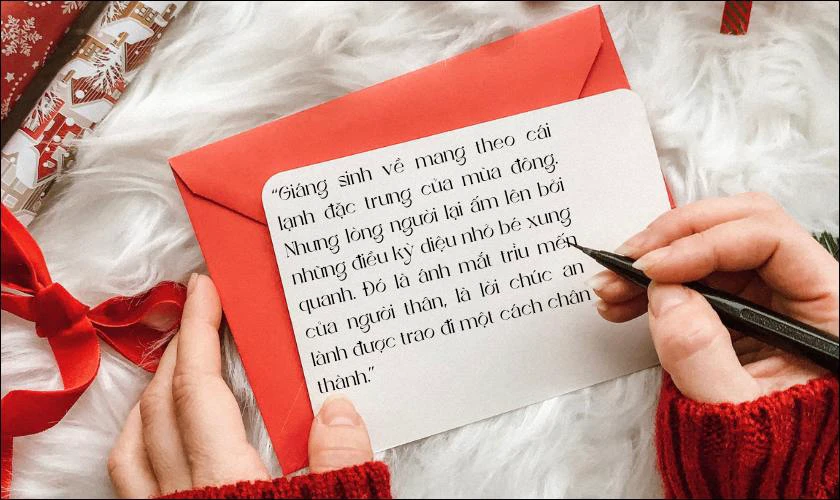 “Giáng sinh về mang theo cái
lạnh đặc trưng của mùa đông.
Nhưng lòng người lại ấm lên bởi
những điều kỳ diệu nhỏ bé xung
quanh. Đó là ánh mắt trìu mến
của người thân, là lời chúc an
lành được trao đi một cách chân
thành.”